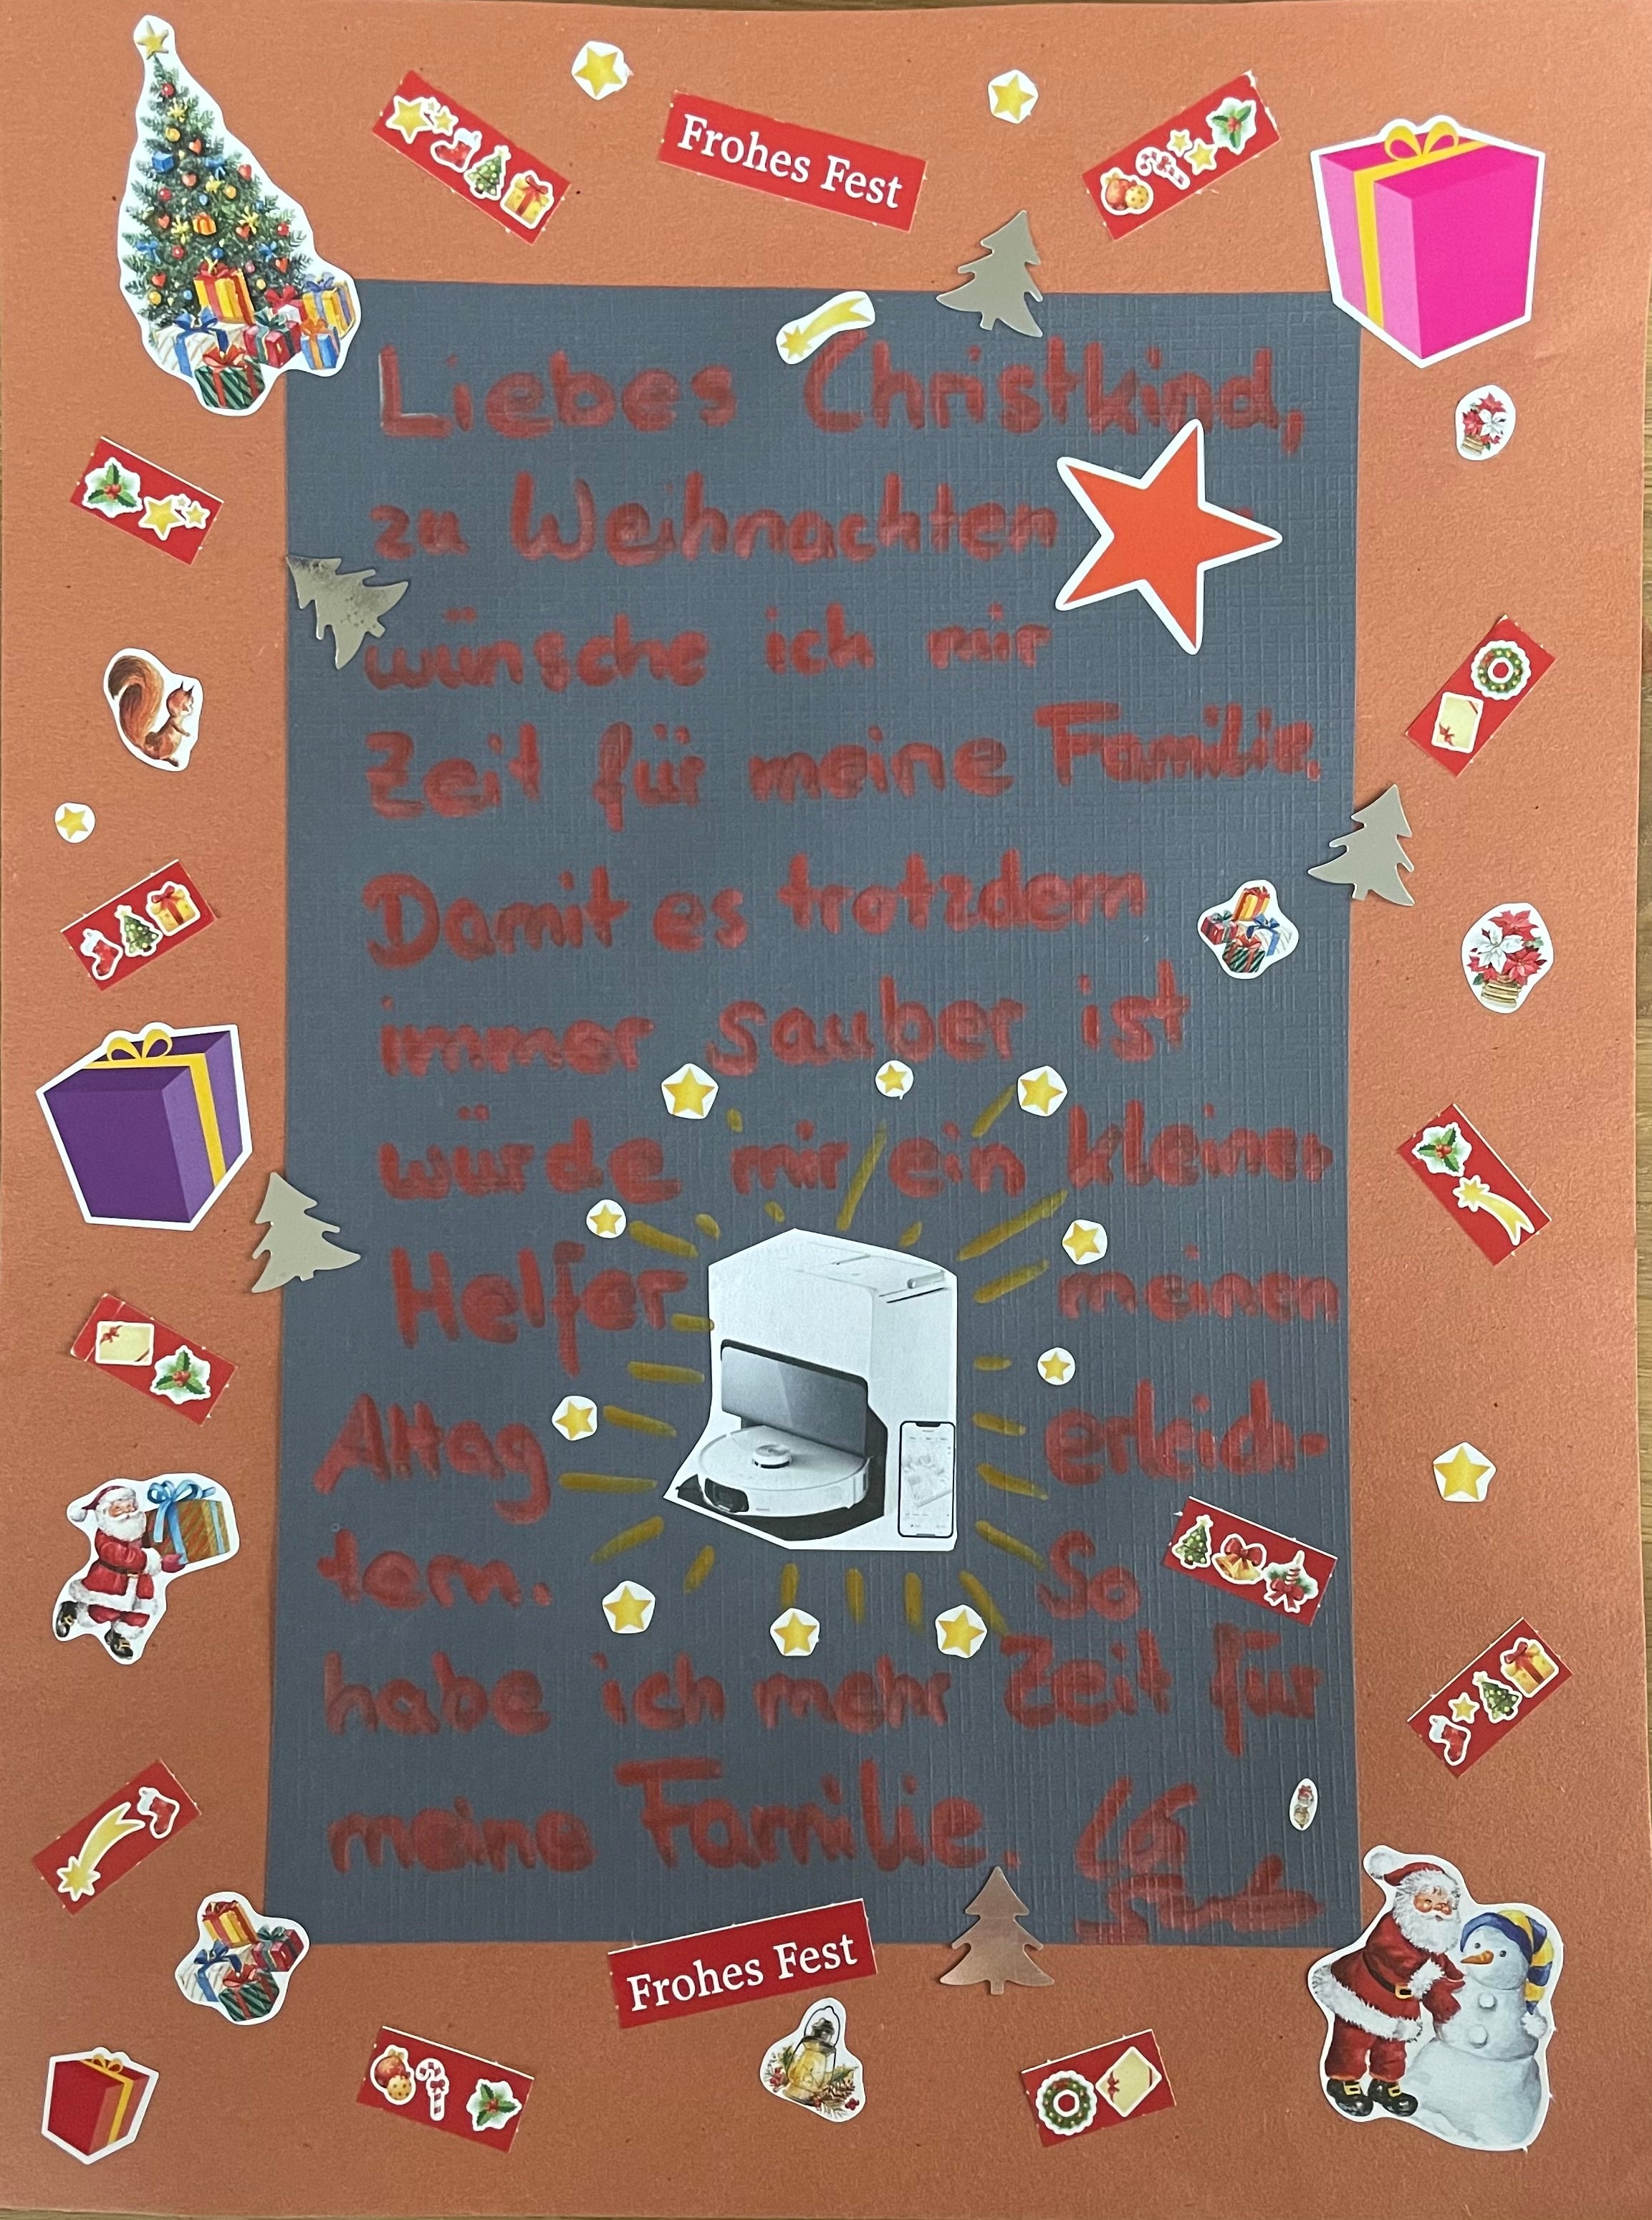 Frohes Fest
Liebes Christkind,
zu Weihnachten
wünsche ich mir
Zeit für meine Familie.
Damit es trotzdem
immer sauber ist
würde mir ein kleiner
Helfer meinen
Alltag erleich-
tern. So
habe ich mehr Zeit für
meine Familie. LG
Frohes Fest